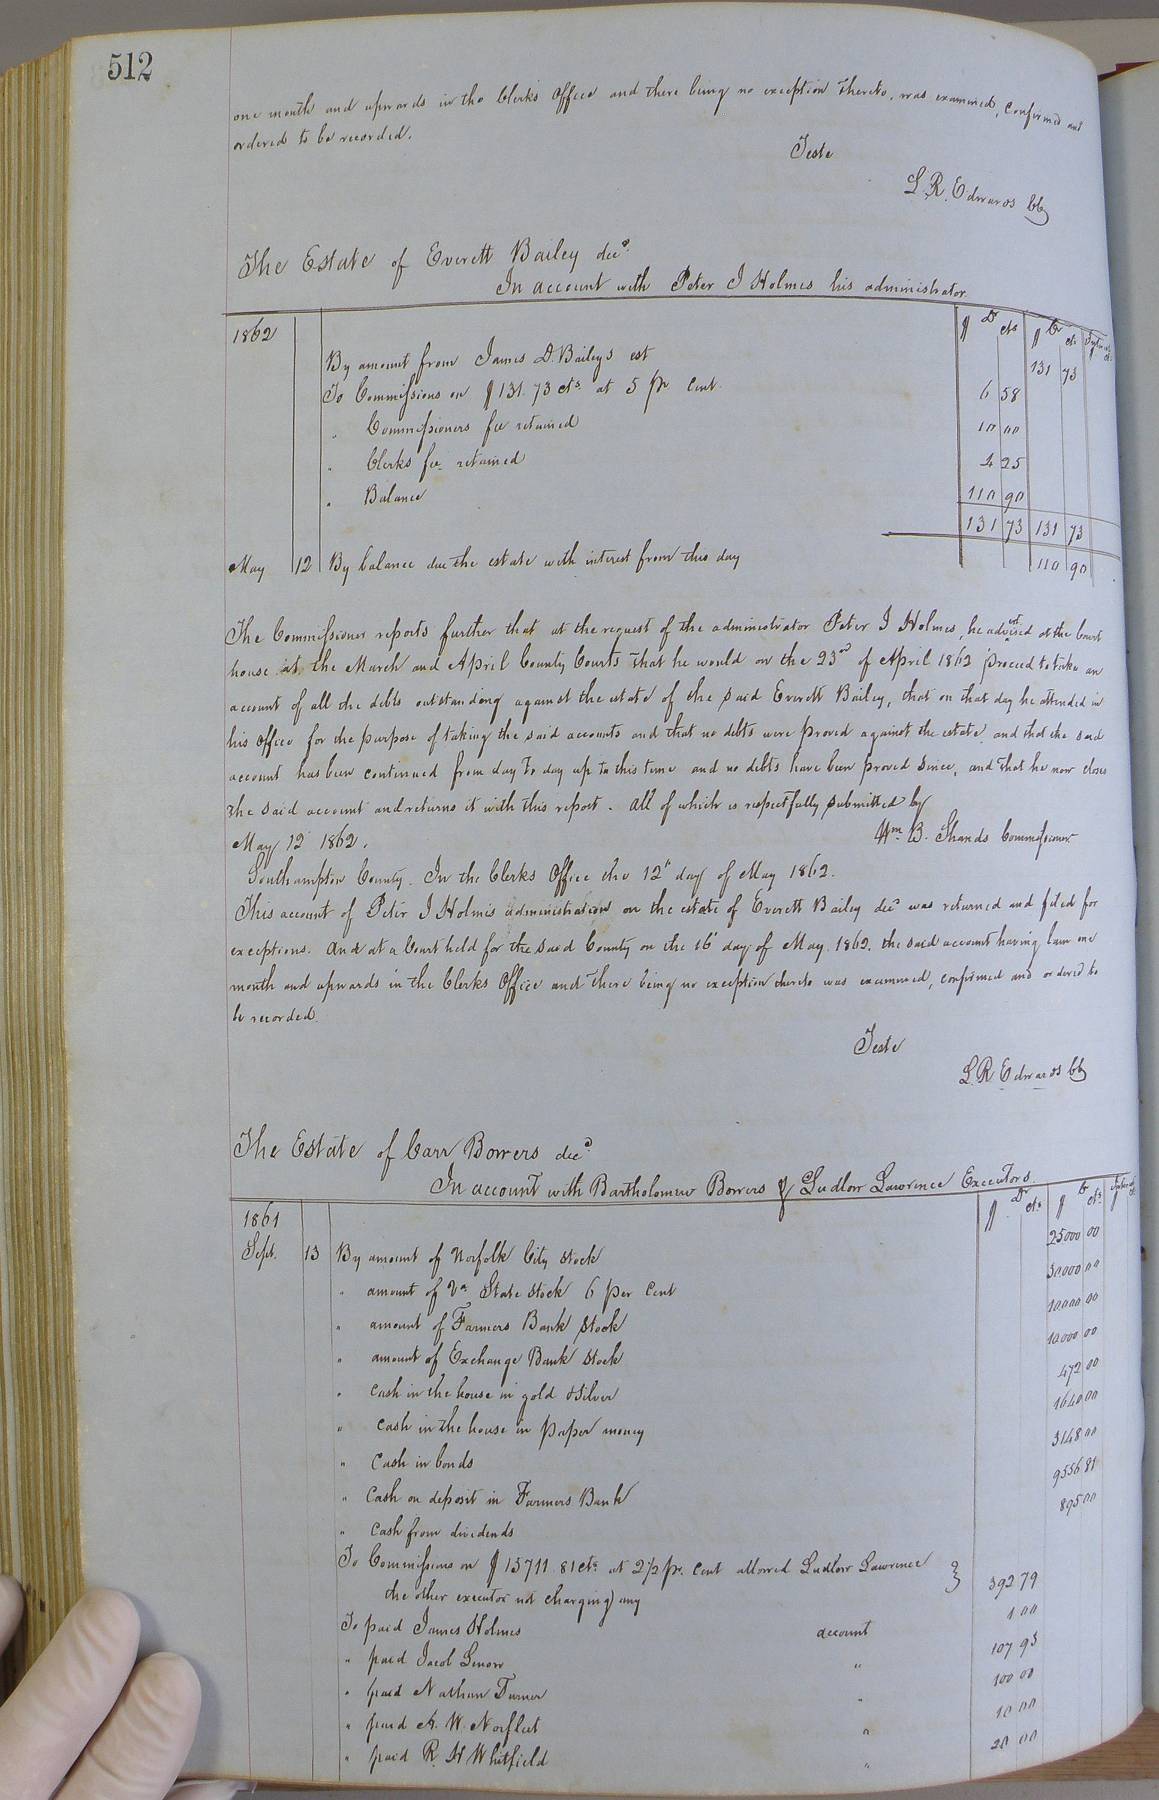 512
one month and upwards in the Clerks Office and there being no exception thereto, was examined, confirmed and
ordered to be recorded.
Teste
L. R. Edwards Clk
The Estate of Everett Bailey decd.
In account with Peter J Holmes his administrator
1862 $ Dr cts $ Cr cts
By amount from James D. Baileys est 131 73
To Commissions on $131.73 cts at 5 pr Cent. 6 58
" Commissioners fee retained 10 00
" Clerks fee retained 4 25
" Balance 110 90
131 73 131 73
May 12 By balance due the estate with interest from this day 110 90
The Commissioner reports further that at the request of the administrator Peter J Holmes, he advertised at the Court
house at the March and April County Courts that he would on the 23rd of April 1862 proceed to take an
account of all the debts outstanding against the estate of the said Everett Bailey, that on that day he attended in
his Office for the purpose of taking the said accounts and that no debts were proved against the estate and that the said
account has been continued from day to day up to this time and no debts have been proved since, and that he now closes
the said account and returns it with this report. All of which is respectfully submitted by
May 12 1862. Wm. B. Shands Commissioner
Southampton County. In the Clerks Office the 12th day of May 1862.
This account of Peter J Holmes administration on the estate of Everett Bailey decd was returned and filed for
exceptions. And at a Court held for the said County on the 16 day of May 1862. the said account having lain one
month and upwards in the Clerks Office and there being no exception thereto was examined, confirmed and ordered to
be recorded.
Teste
L. R Edwards Clk
The Estate of Carr Bowers decd.
In account with Bartholomew Bowers & Ludlow Lawrence Executors.
1861 $ Dr cts $ Cr cts
Sept. 13 By amount of Norfolk City Stock 25000 00
" amount of Va State Stock 6 per Cent 30000 00
" amount of Farmers Bank Stock 10000 00
" amount of Exchange Bank Stock 10000 00
" Cash in the house in gold & Silver 472 00
" Cash in the house in paper money 1640 00
" Cash in bonds 3148 00
" Cash on deposit in Farmers Bank 9556 81
" Cash from dividends 895 00
To Commissions on $15711 81 cts at 2 1/2 pr. Cent allowed Ludlow Lawrence }
the other executor not charging any 392 79
To paid James Holmes account 1 00
" paid Jacob Lenow " 107 93
" paid Nathan Turner " 100 00
" paid A. W. Norfleet " 10 00
" paid R. H Whitfield " 20 00